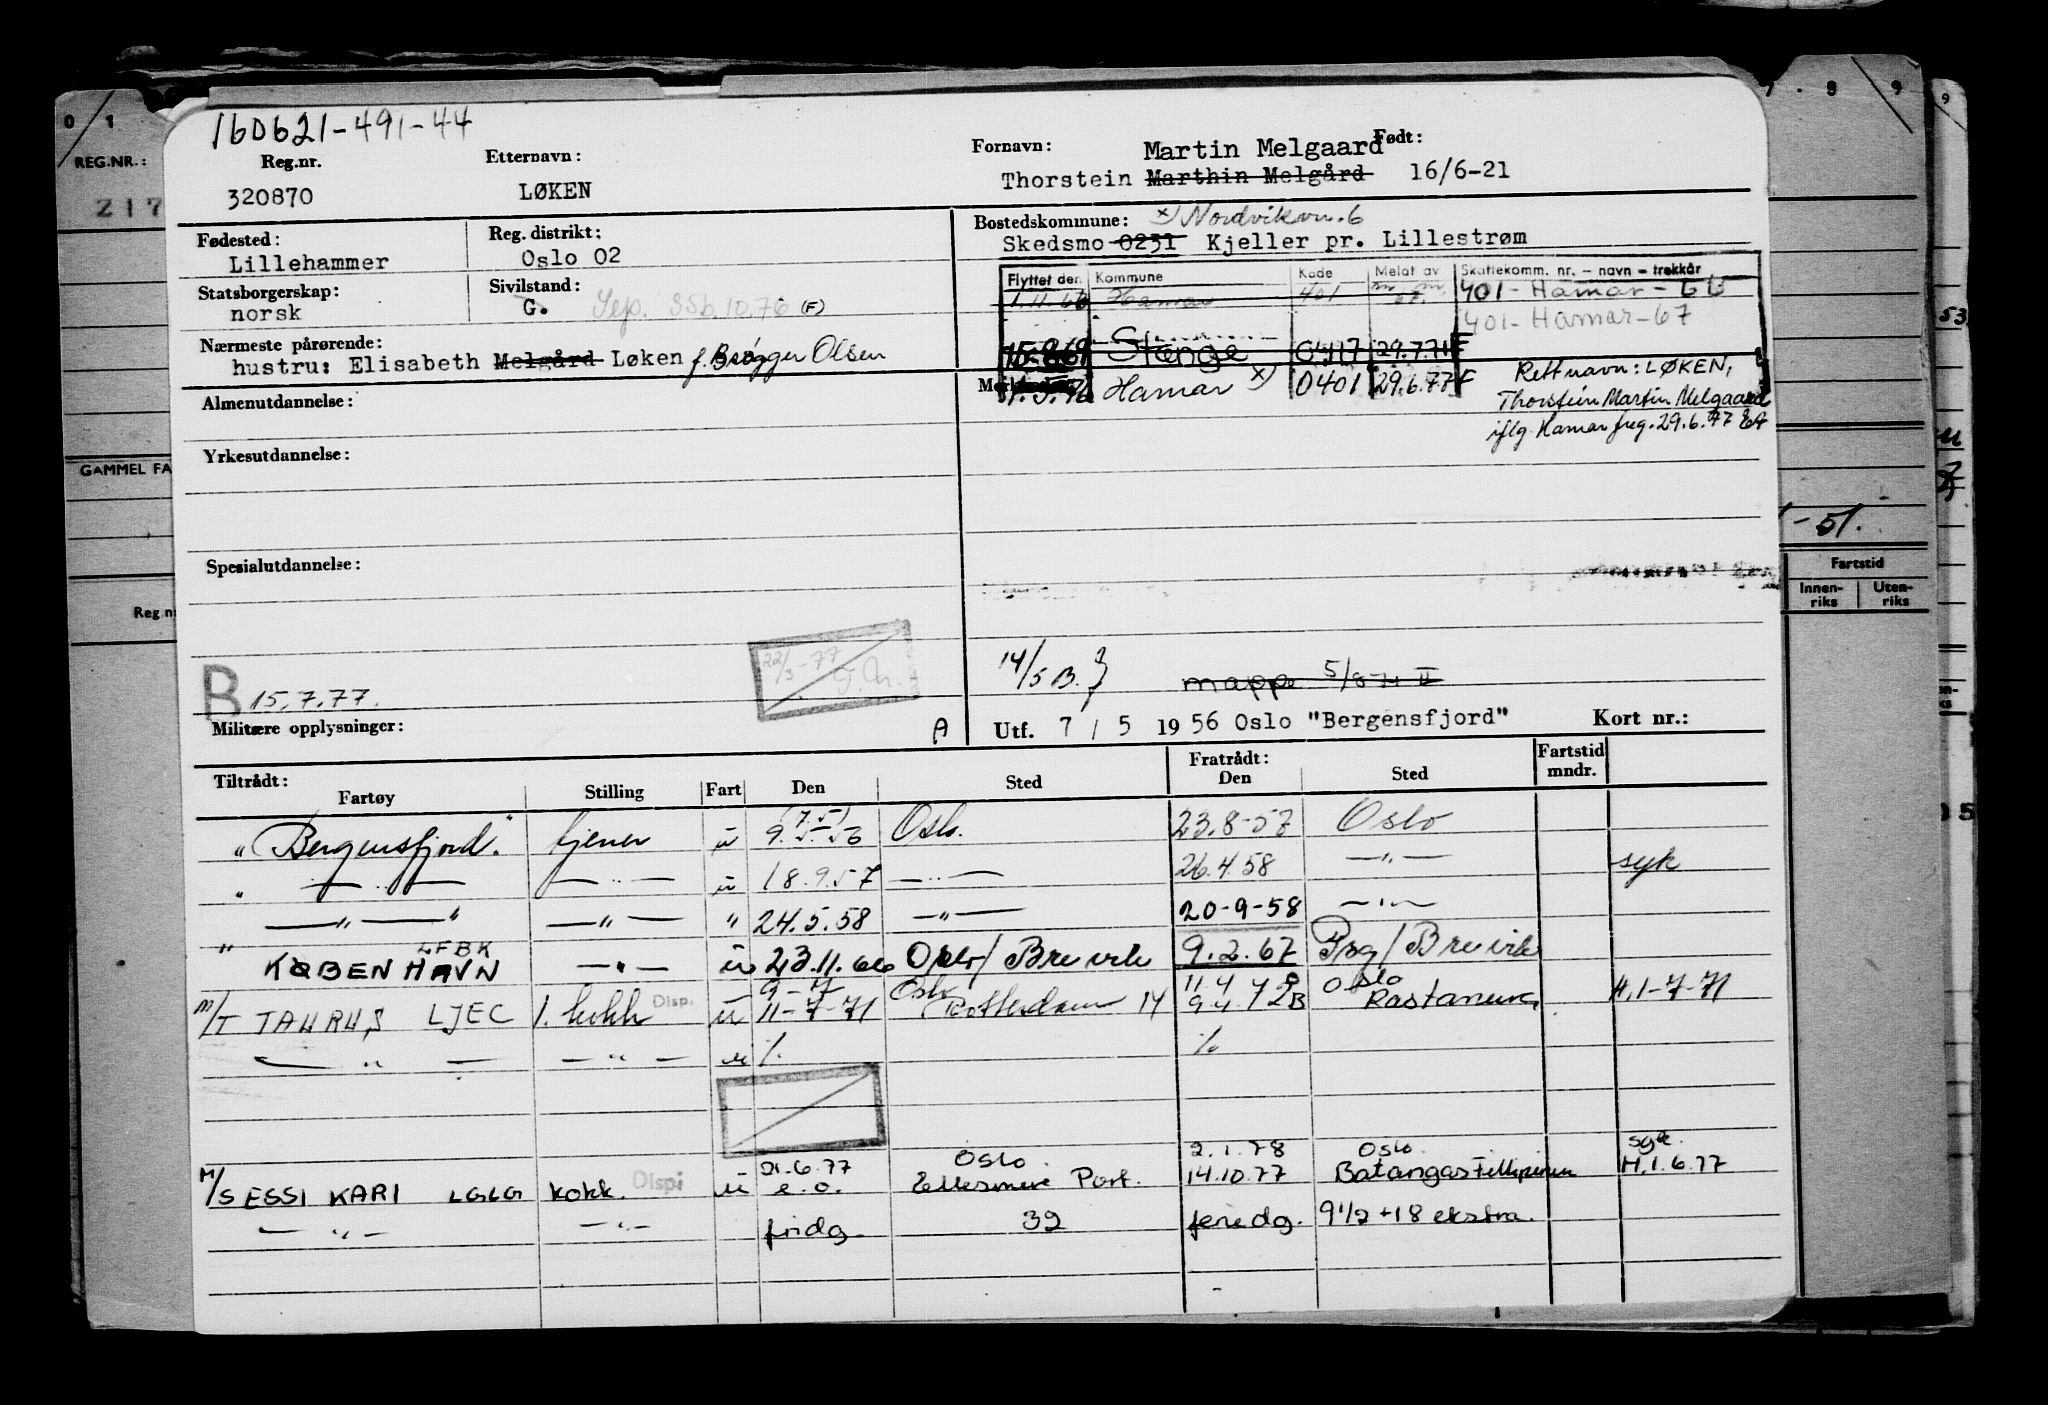 160621-491-44
Reg.nr. Etternavn: Fornavn: Martin Melgaard Født:
320870 LØKEN Thorstein Marthin Melgård 16/6-21
Fødested: Reg. distrikt: Bostedskommune: x) Nordvikvn. 6
Lillehammer Oslo 02 Skedsmo 0231 Kjeller pr. Lillestrøm
Statsborgerskap: Sivilstand: Flyttet den Kommune Kode Meldt av Skattekomm. nr. - navn - trekkår
norsk G. Sep. (F) 1.11.66 Hamar 401 401 - Hamar - 66
401 - Hamar - 67
Nærmeste pårørende: 15.8.69 Stange 0417 29.7.71 F
hustru: Elisabeth Melgård Løken f. Brøgger Olsen
Hamar x) 0401 29.6.77 F
Rett navn: LØKEN,
Thorstein Martin Melgaard
iflg. Hamar freg. 29.6.77
Almenutdannelse:
Yrkesutdannelse:
Spesialutdannelse:
22/3-77
14/5 B. mappe 5/8-71 II
B 15.7.77.
Militære opplysninger: A Utf. 7 / 5 1956 Oslo "Bergensfjord" Kort nr.:
Tiltrådt: Fratrådt: Fartstid
Fartøy Stilling Fart Den Sted Den Sted mndr.
"Bergensfjord" tjener u (7.5) 9.5.56 Oslo. 23.8-57 Oslo
" — " — — " — u 18.9.57 — " — 26.4.58 — " — syk
— " — " — " — " 24.5.58 — " — 20-9-58 — " —
" KØBENHAVN LFBK — " — u 23.11.66 Oslo/Brevik 9.2.67 Psg/Brevik
9-7 Oslo 11.4 Oslo
M/T TAURUS LJEC 1. kokk Disp. u 11-7-71 Rotterdam 14 9.4.72 B H.1-7-71
— " — — " — u %. %
01.6.77 Oslo. 2.1.78 Oslo syk.
M/S ESSI KARI LGLG kokk. Disp u e.o. Ellesmere Port. 14.10.77 Batangas Fillipinen H.1.6.77
— " — — " — fridg. 39 feriedg. 9 1/2 + 18 ekstra.
0 1
REG.NR.:
217
GAMMEL FA
Reg.n
7 . 8 9 9
53
- 51.
Fartstid
Innenriks Utenriks